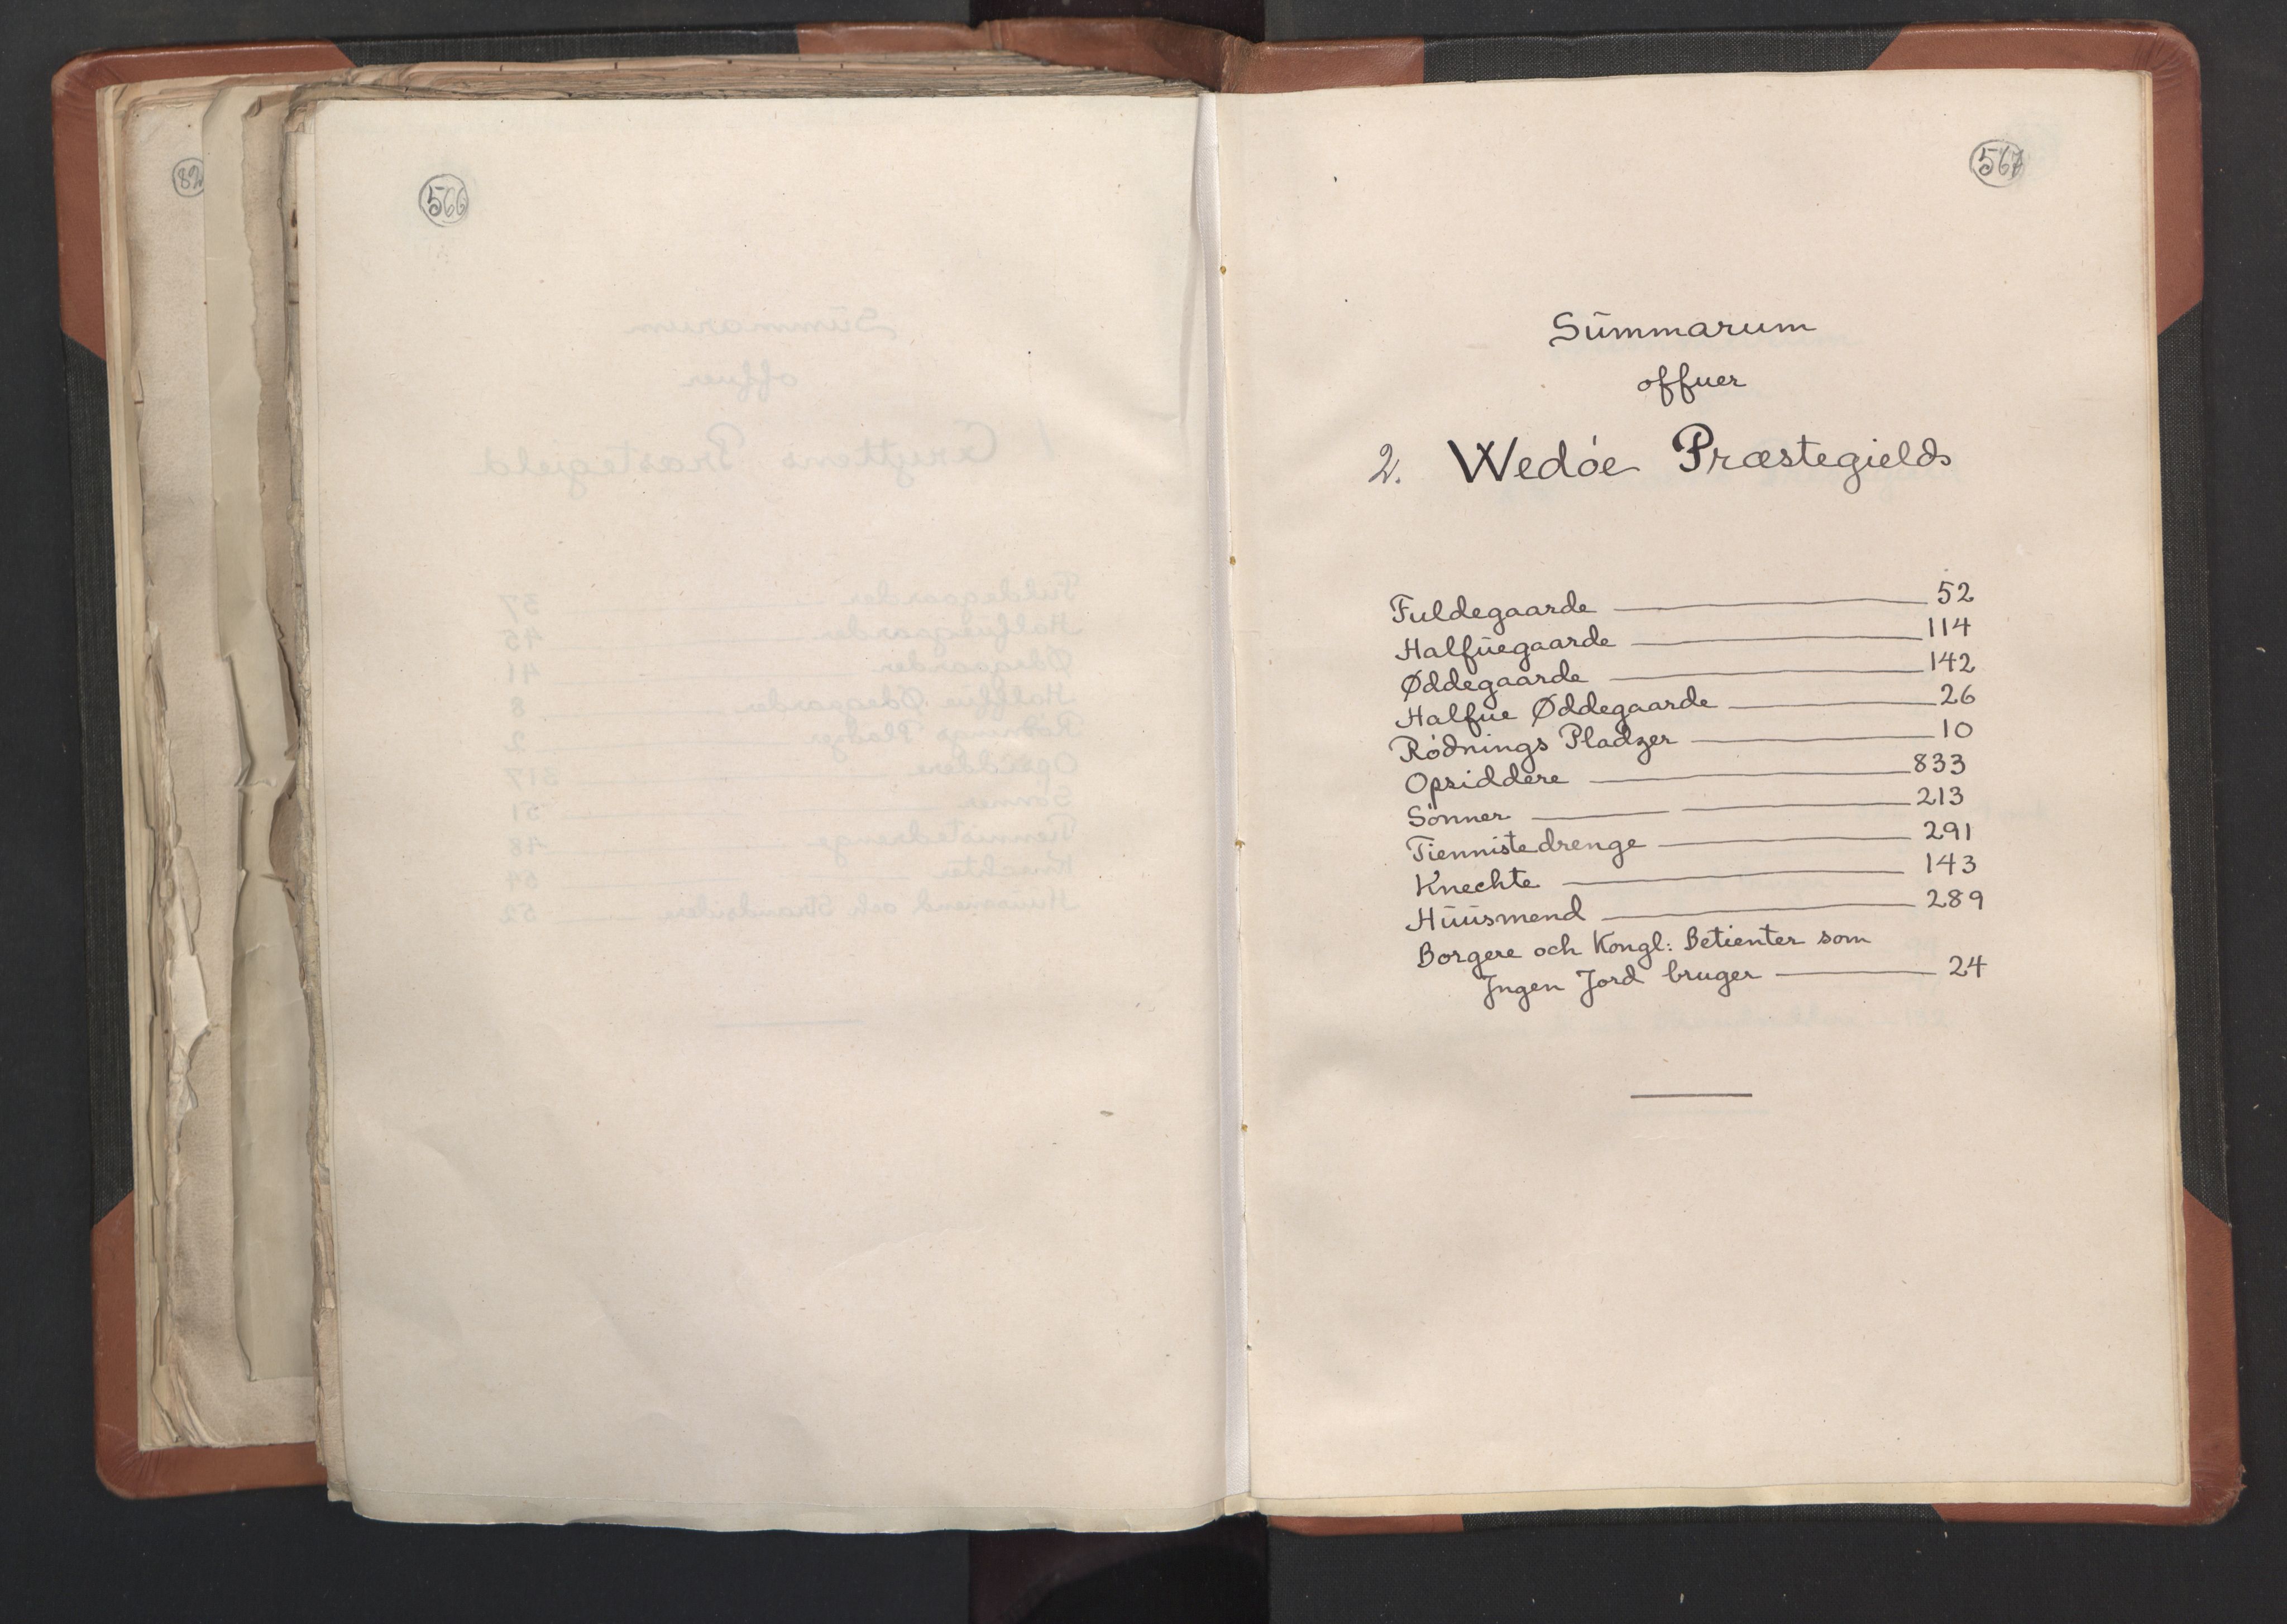 82
566
567
Sūmmarum
offuer
2. Wedøe Præstegields
Fuldegaarde 52
Halfūegaarde 114
Øddegaarde 142
Halfūe Øddegaarde 26
Rødnings Pladzer 10
Opsiddere 833
Sönner 213
Tiennistedrenge 291
Knechte 143
Hūūsmend 289
Borgere och Kongl: Betienter som
Jngen Jord bruger 24